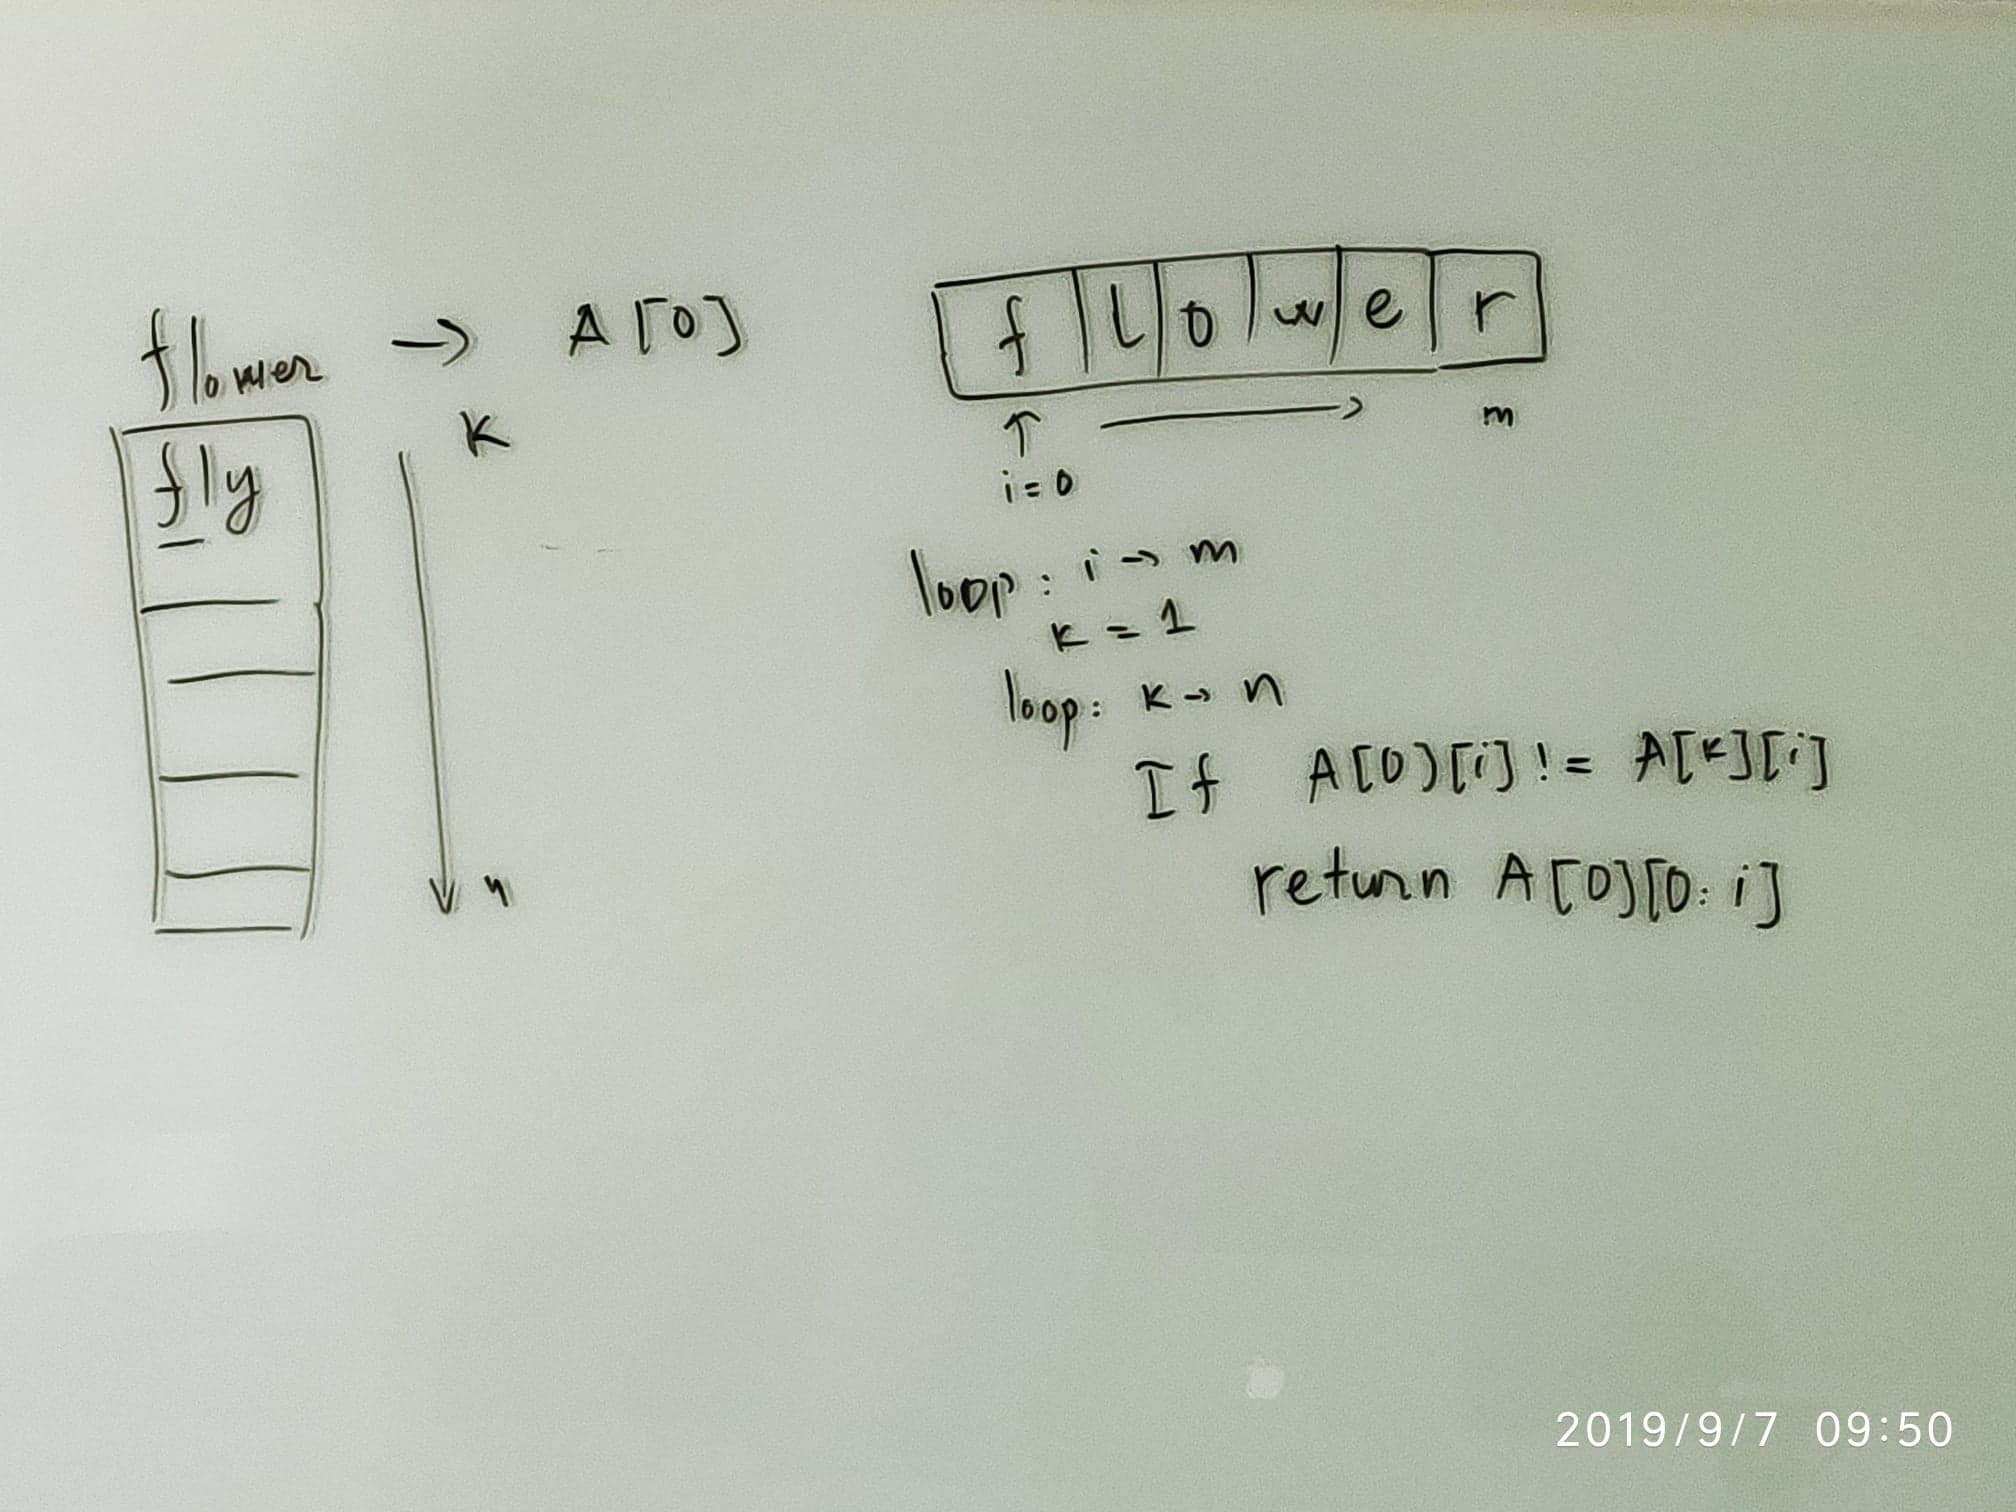 flower → A[0]
K
fly
n
f l o w e r
↑ → m
i=0
loop: i → m
K = 1
loop: K → n
If A[0][i] != A[K][i]
return A[0][0:i]
2019/9/7 09:50